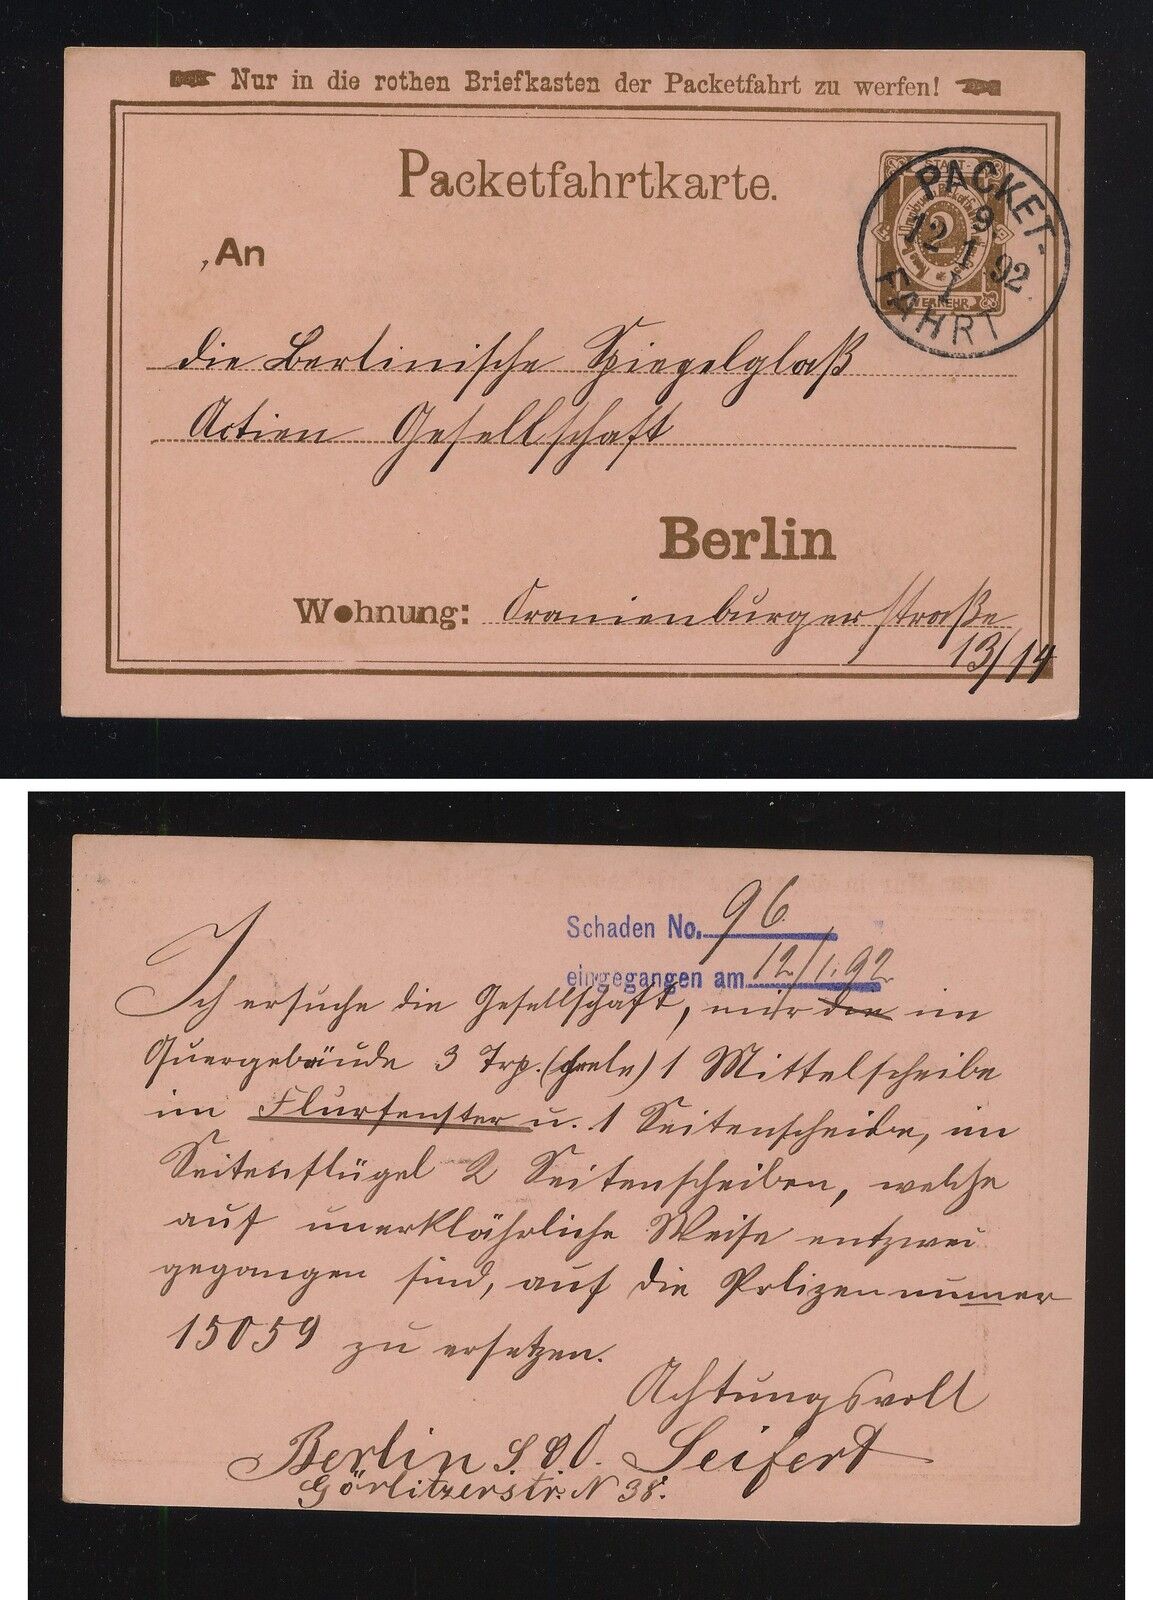 Nur in die rothen Briefkasten der Packetfahrt zu werfen!
Packetfahrtkarte.
STADT-
2
VERKEHR.
PACKET-
9
12 1 92
1
FAHRT
An
die Berlinische Spiegelglaß
Actien Gesellschaft
Berlin
Wohnung: Oranienburgerstraße
13/14
Schaden No. 96
eingegangen am 12/1.92
Ich ersuche die Gesellschaft, mir die im
Quergebäude 3 Trp. 1 Mittelscheibe
im Flurfenster u. 1 Seitenscheibe, im
Seitenflügel 2 Seitenscheiben, welche
auf unerklährliche Weise entzwei
gegangen sind, auf die Polizennumer
15059 zu ersetzen.
Achtungsvoll
Berlin S.O. Seifert
Görlitzerstr. N 38.